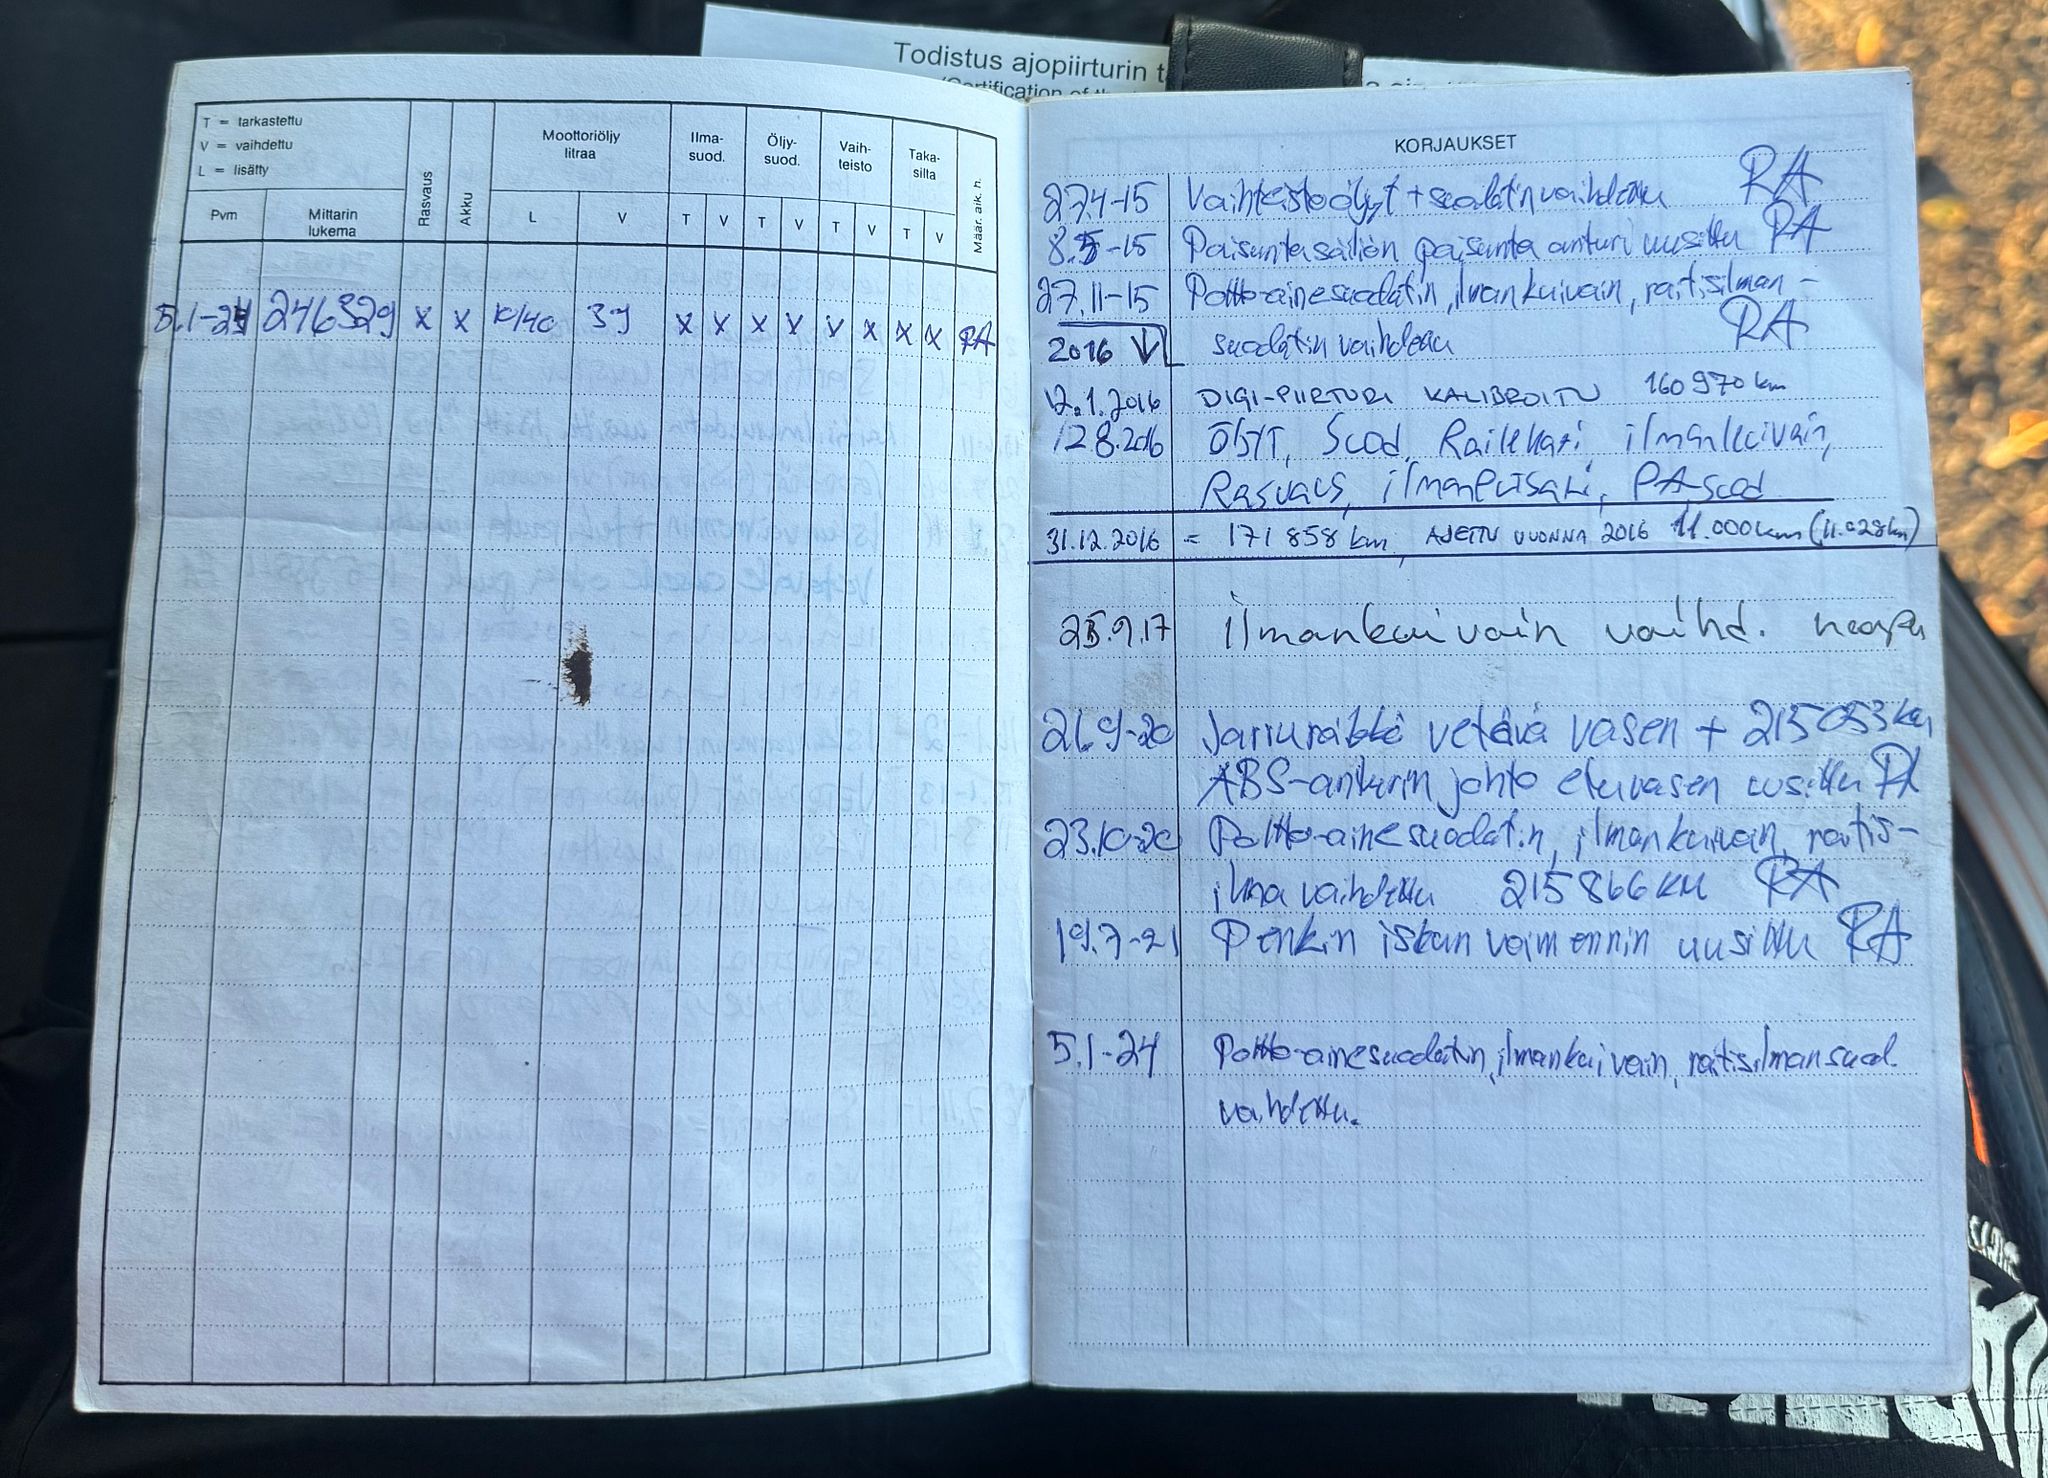 Todistus ajopiirturin
T = tarkastettu
V = vaihdettu
L = lisätty
Pvm
Mittarin
lukema
Rasvaus
Akku
Moottoriöljy
litraa
L V
Ilma-
suod.
T V
Öljy-
suod.
T V
Vaih-
teisto
T V
Taka-
silta
T V
Määr. aik. h.
5.1-24 246329 x x 10/40 39 x x x x v x x x RA
KORJAUKSET
27.4-15 Vaihteistoöljyt + suodatin vaihdettu RA
8.5-15 Paisuntasäiliön paisunta anturi uusittu RA
27.11-15 Polttoainesuodatin, ilmankuivain, raitisilman-
2016 suodatin vaihdettu RA
12.1.2016 DIGI-PIIRTURI KALIBROITU 160970 km
12.8.2016 ÖLJYT, Suod, Raikkari, ilmankuivain,
Rasvaus, ilmanputsari, PA suod
31.12.2016 = 171 858 km, AJETTU VUONNA 2016 11.000 km (11.028 km)
25.9.17 ilmankuivain vaihd.
21.9-20 Jarrurälli vetävä vasen + 215053 km
ABS-anturin johto etuvasen uusittu RA
23.10-20 Polttoainesuodatin, ilmankuivain, raitis-
ilma vaihdettu 215866 KM RA
19.7-21 Penkin iskun vaimennin uusittu RA
5.1-24 Polttoainesuodatin, ilmankuivain, raitisilman suod.
vaihdettu.